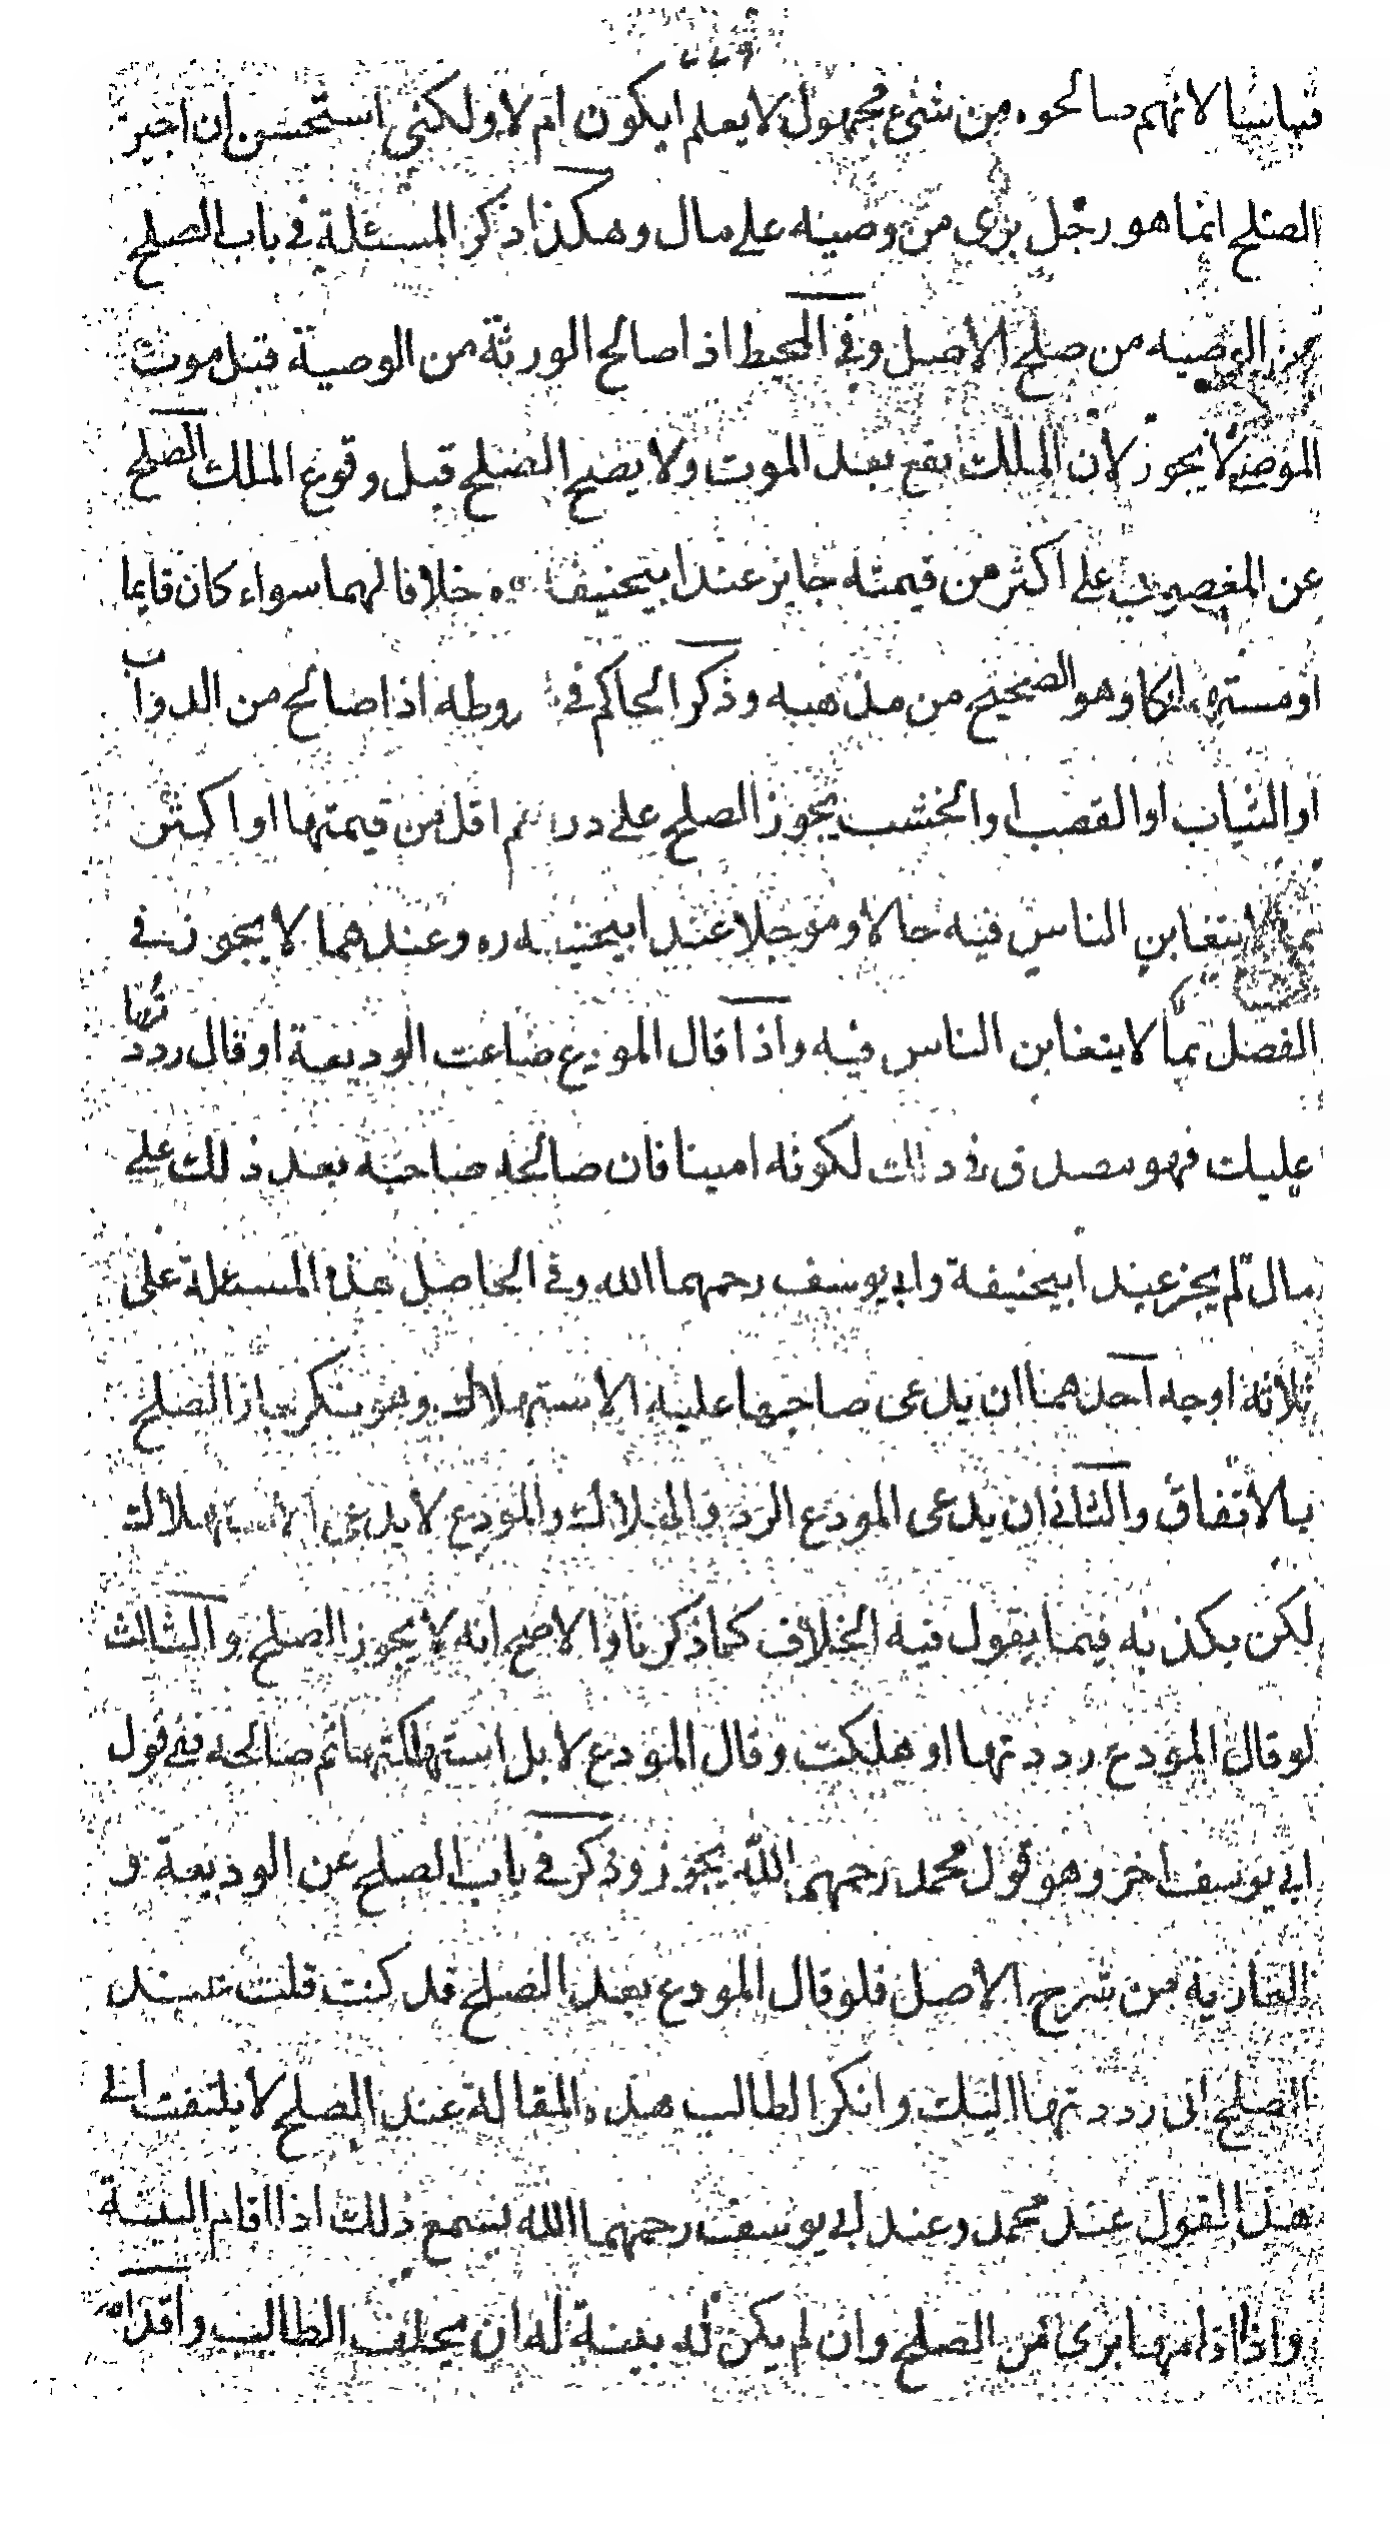 قياسا لانهم صالحوه من شئ مجهول لا يعلم ايكون ام لا ولكنى استحسن ان اجيز
الصلح انما هو رجل برى من وصيه على مال وهكذا ذكر المسئلة في باب الصلح
من الوصيه من صلح الاصل وفى المحيط اذا صالح الورثة من الوصية قبل موت
الموصى لا يجوز لان الملك يقع بعد الموت ولا يصح الصلح قبل وقوع الملك الصلح
عن المغصوب على اكثر من قيمته جايز عند ابيحنيفة ره خلافا لهما سواء كان قايما
او مستهلكا وهو الصحيح من مذهبه وذكر الحاكم في شروطه اذا صالح من الدواب
او الثياب او القصب او الخشب يجوز الصلح على دراهم اقل من قيمتها او اكثر
مما لا يتغابن الناس فيه حالا ومؤجلا عند ابيحنيفه ره وعندهما لا يجوز في
الفضل بما لا يتغابن الناس فيه واذا قال المودع ضاعت الوديعة او قال رددتها
عليك فهو مصدق في ذلك لكونه امينا فان صالحه صاحبه بعد ذلك على
مال لم يجز عند ابيحنيفة وابى يوسف رحمهما الله وفى الحاصل هذا المسئلة على
ثلاثة اوجه احدهما ان يدعى صاحبها عليه الاستهلاك وهو منكر جاز الصلح
بالأتفاق والثانى ان يدعى المودع الرد والهلاك والمودع لا يدعى الاستهلاك
لكن يكذبه فيما يقول فيه الخلاف كما ذكرنا والاصح انه لا يجوز الصلح والثالث
لو قال المودع رددتها او هلكت وقال المودع لا بل استهلكتها ثم صالحه ففى قول
ابى يوسف اخر وهو قول محمد رحمهم الله يجوز وذكر في باب الصلح عن الوديعة و
العارية من شرح الاصل فلو قال المودع بعد الصلح قد كنت قلت عند
الصلح انى رددتها اليك وانكر الطالب هذه المقالة عند الصلح لا يلتفت الى
هذا القول عند محمد وعند ابى يوسف رحمهما الله يسمع ذلك اذا اقام البينة
واذا اقامها برى من الصلح وان لم يكن له بينة له ان يحلف الطالب واقدام